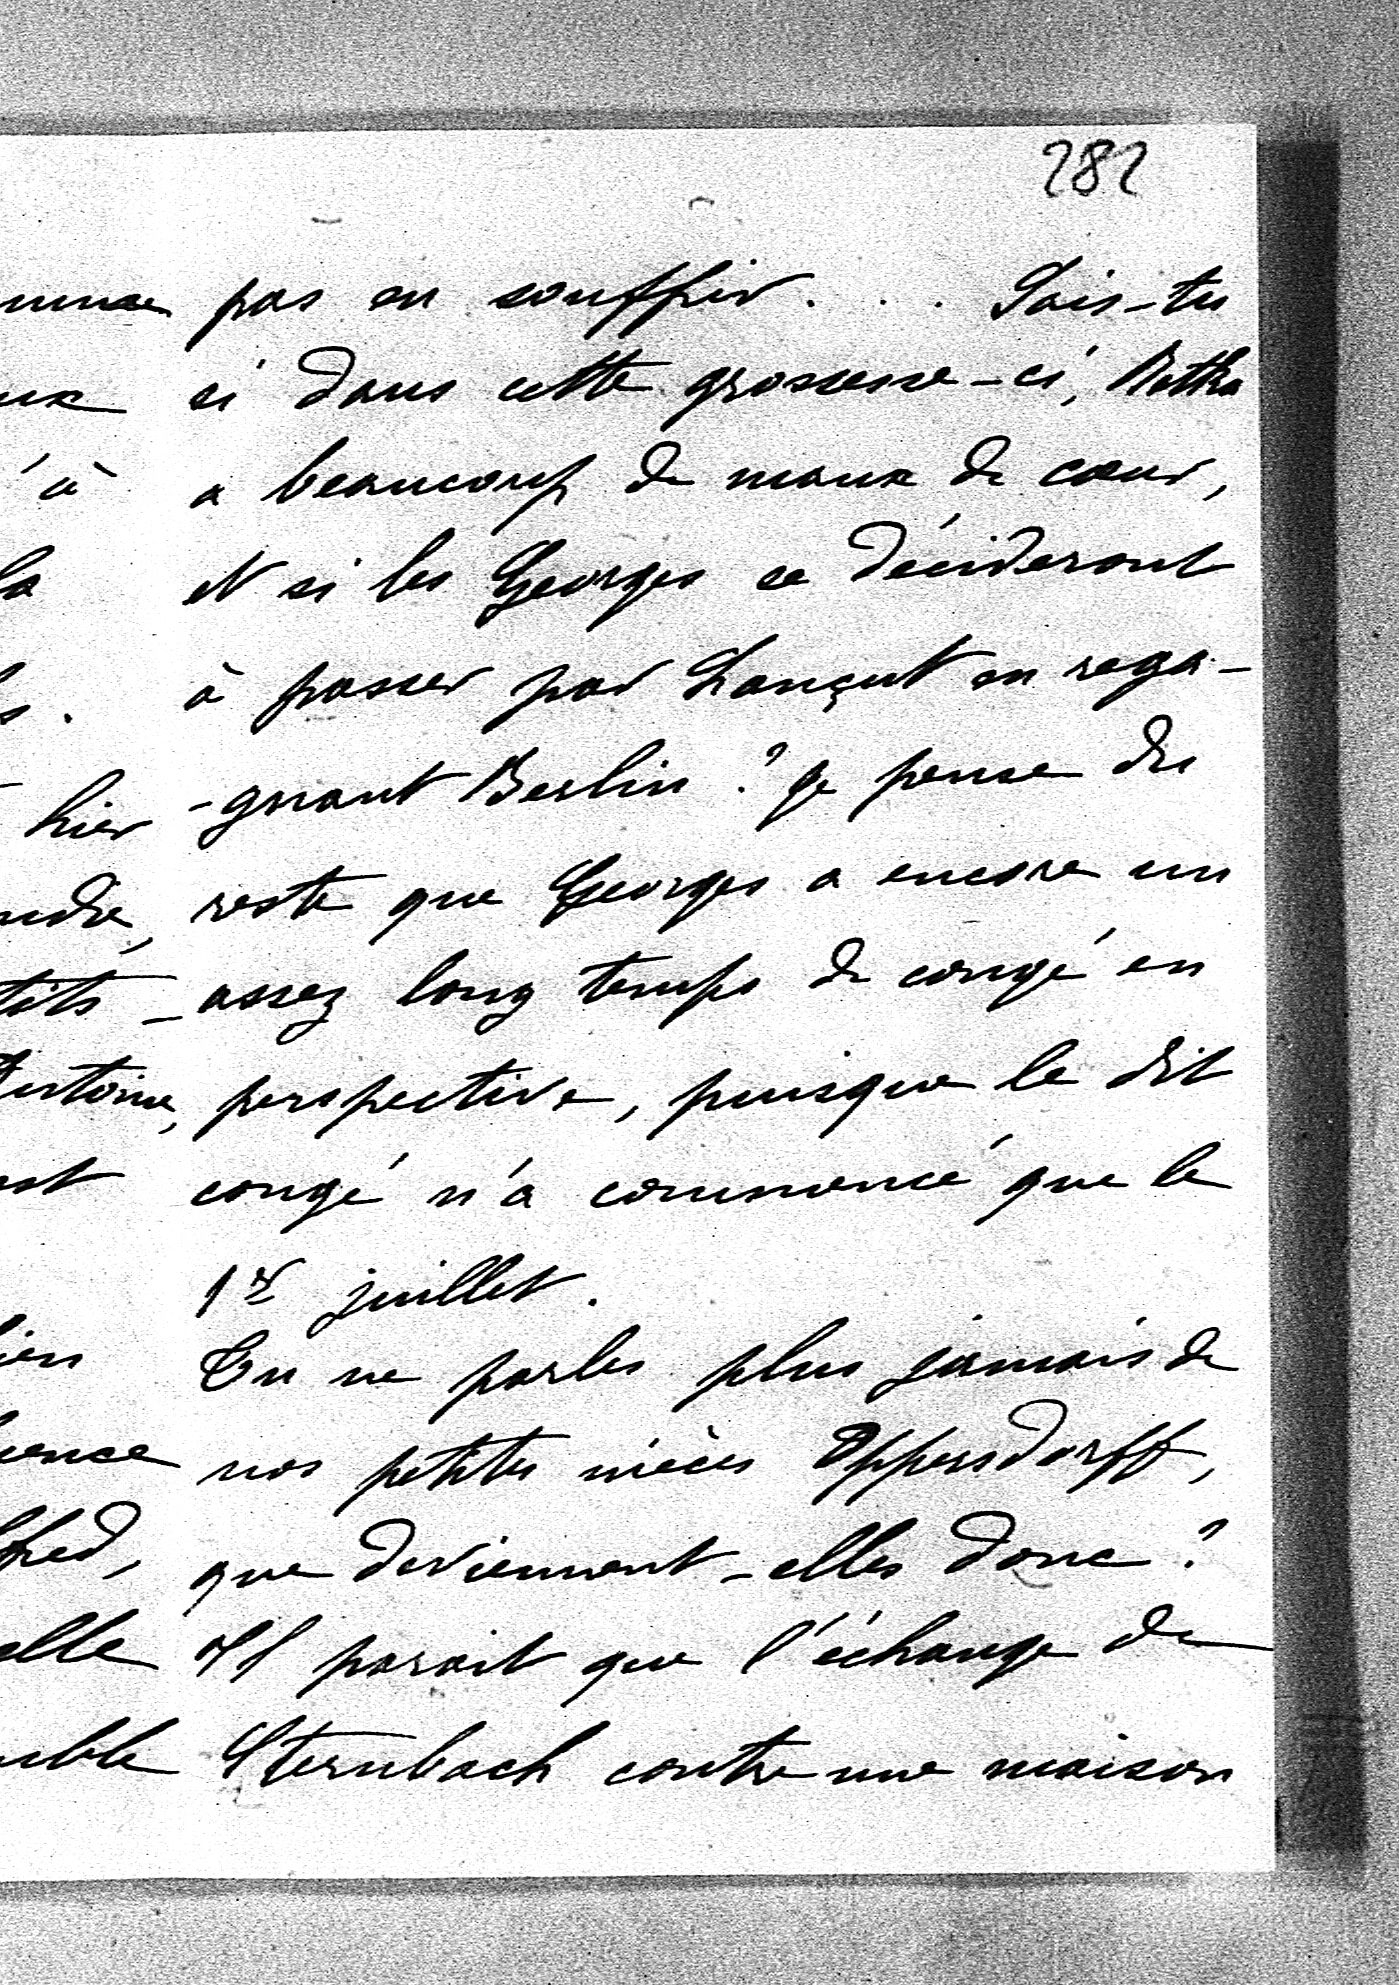 282
pas en souffrir . . . Sais-tu
si dans cette grossesse-ci, Betka
a beaucoup de maux de cœur,
et si les Georges se décideront
à passer par Lançut en rega-
-gnant Berlin ? Je pense du
reste que Georges a encore un
assez long temps de congé en
perspective, puisque le dit
congé n'a commencé que le
1er juillet.
Tu ne parles plus jamais de
nos petites nièces Oppersdorff,
que deviennent-elles donc ?
Il parait que l'échange de
Sternbach contre une maison
à
la
hier
elle